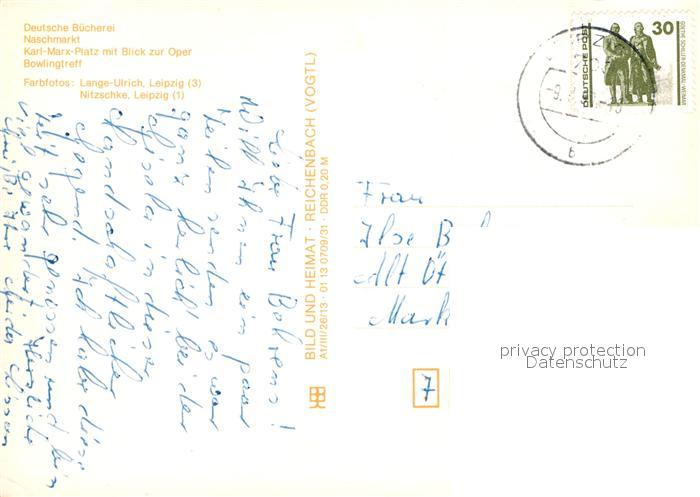 Deutsche Bücherei
Naschmarkt
Karl-Marx-Platz mit Blick zur Oper
Bowlingtreff
Farbfotos: Lange-Ulrich, Leipzig (3)
Nitzschke, Leipzig (1)
Liebe Frau
Will Ihnen ein paar
Zeilen senden es war
ganz herrlich bei der
Gisela in dieser
landschaftlicher
Gegend. Ich habe diese
Zeit sehr genossen und bin
viel gewandert. Herzliche
Grüße Ihre
BILD UND HEIMAT · REICHENBACH (VOGTL)
A1/III/26/13 · 01 13 0709/31 · DDR 0,20 M
DEUTSCHE POST
30
GOETHE-SCHILLER-DENKMAL · WEIMAR
b
Frau
Ilse B
Alt Öt
Mark
7
privacy protection
Datenschutz